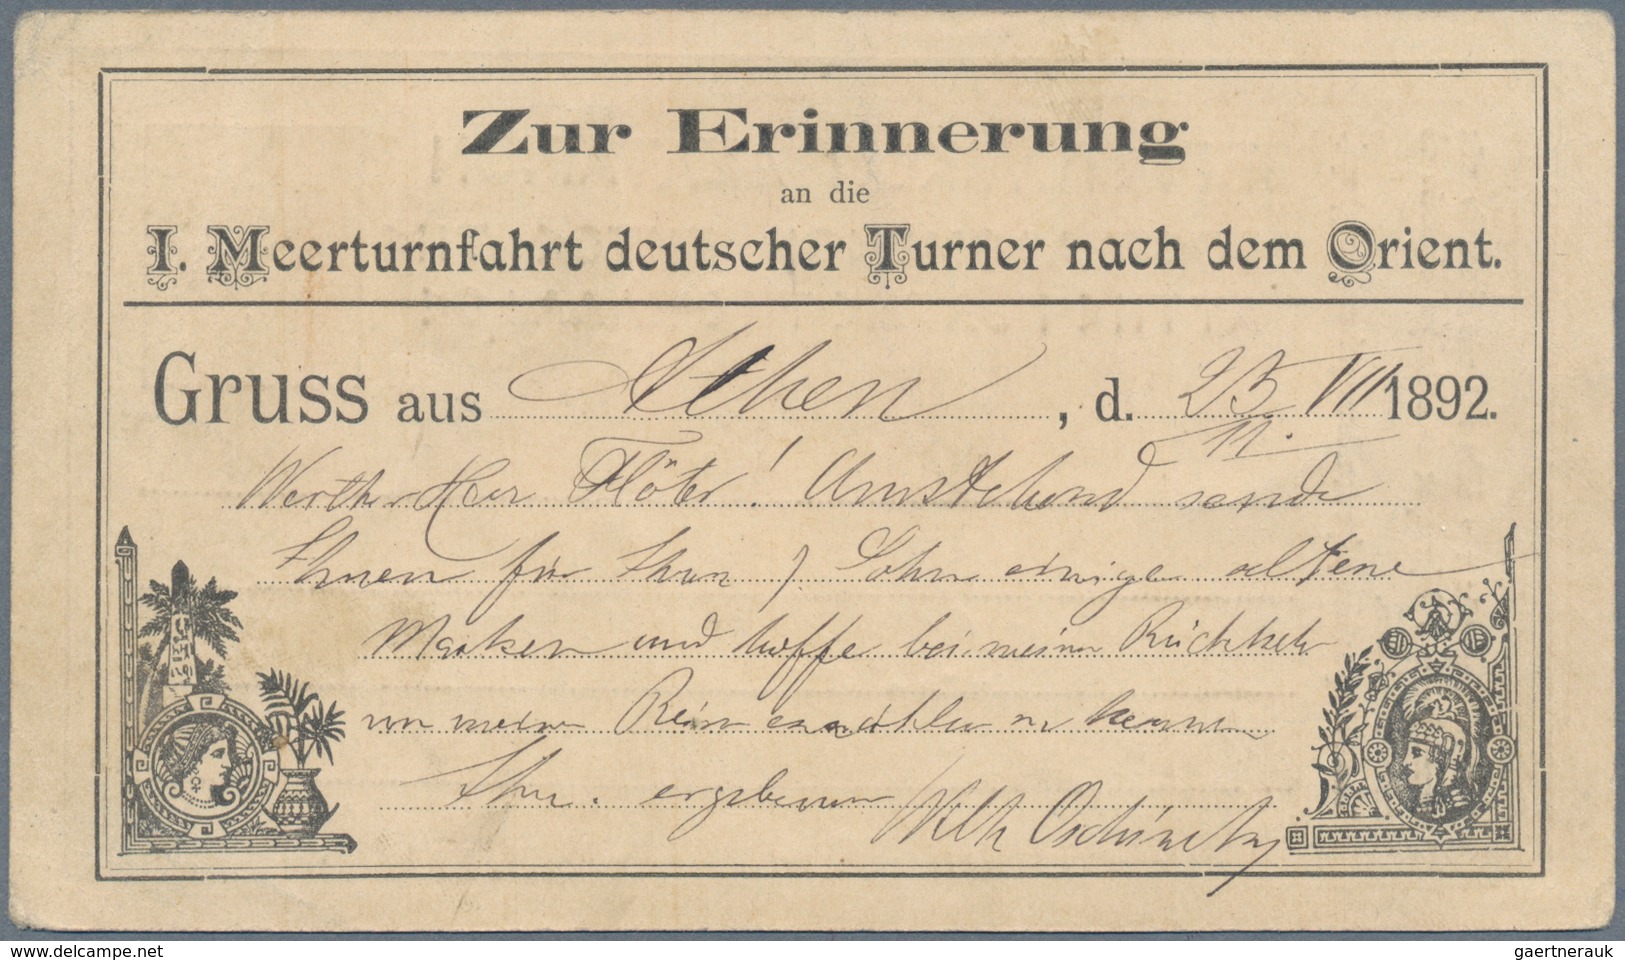 Zur Erinnerung
an die
I. Meerturnfahrt deutscher Turner nach dem Orient.
Gruss aus Athen, d. 23 VII 1892.
11.
Werther Herr Flöter! Umstehend sende
Ihnen für Ihren Sohn einige
Marken und hoffe bei meiner Rückkehr
von meiner Reise erzählen zu können
Ihr ergebener
delcampe.net
gaertnerauk